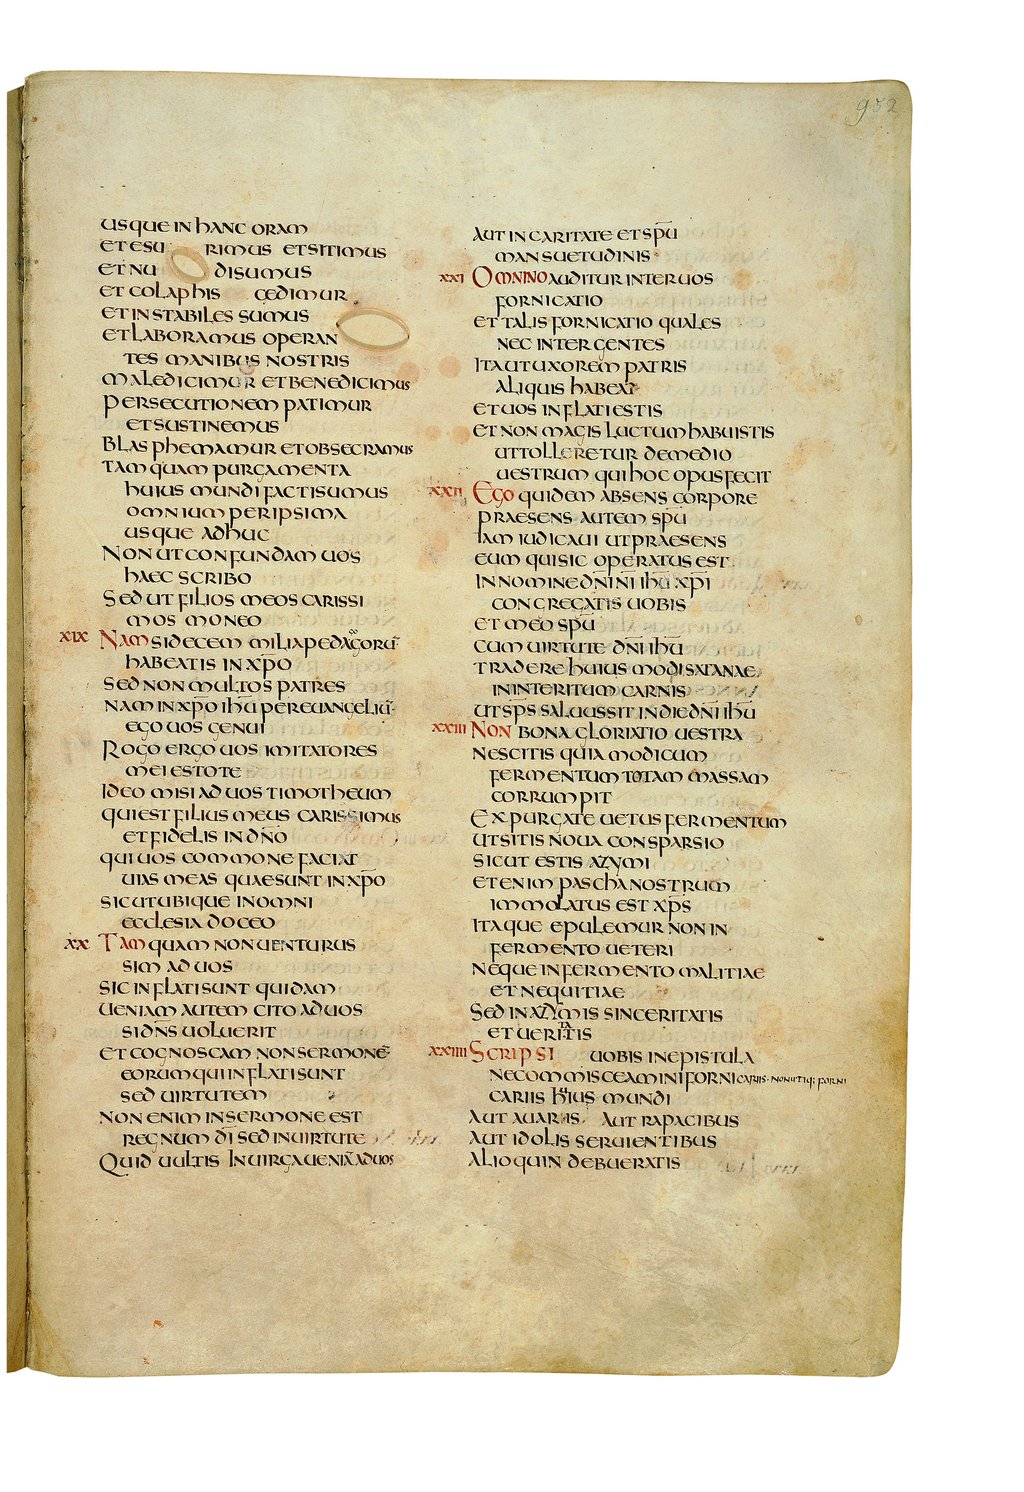 952
usque in hanc oram
et esu rimus et sitimus
et nu disumus
et colaphis cedimur
et instabiles sumus
et laboramus operan
tes manibus nostris
maledicimur et benedicimus
persecutionem patimur
et sustinemus
Blasphemamur et obsecramus
Tamquam purgamenta
huius mundi facti sumus
omnium peripsima
usque adhuc
Non ut confundam uos
haec scribo
Sed ut filios meos carissi
mos moneo
xix Nam si decem milia pedagogorū
habeatis in xp̄o
Sed non multos patres
Nam in xp̄o ih̄u per euangeliū
ego uos genui
Rogo ergo uos imitatores
mei estote
Ideo misi ad uos timotheum
qui est filius meus carissimus
et fidelis in dn̄o
qui uos commonefaciat
uias meas quae sunt in xp̄o
sicut ubique in omni
ecclesia doceo
xx Tamquam non uenturus
sim ad uos
sic inflati sunt quidam
ueniam autem cito ad uos
si dn̄s uoluerit
et cognoscam non sermonē
eorum qui inflati sunt
sed uirtutem
Non enim in sermone est
regnum dī sed in uirtute
Quid uultis In uirga ueniā ad uos
aut in caritate et sp̄u
mansuetudinis
xxi Omnino auditur inter uos
fornicatio
et talis fornicatio quales
nec inter gentes
Ita ut uxorem patris
aliquis habeat
et uos inflati estis
et non magis luctum habuistis
ut tolleretur de medio
uestrum qui hoc opus fecit
xxii Ego quidem absens corpore
praesens autem sp̄u
Iam iudicaui ut praesens
eum qui sic operatus est
In nomine dn̄i n̄i ih̄u xp̄i
congregatis uobis
et meo sp̄u
cum uirtute dn̄i ih̄u
tradere huius modi satanae
in interitum carnis
ut sp̄s saluus sit in die dn̄i ih̄u
xxiii Non bona gloriatio uestra
Nescitis quia modicum
fermentum totam massam
corrumpit
Expurgate uetus fermentum
ut sitis noua consparsio
sicut estis azymi
etenim pascha nostrum
immolatus est xp̄s
Itaque epulemur non in
fermento ueteri
Neque in fermento malitiae
et nequitiae
Sed in azymis sinceritatis
et ueritatis
xxiiii Scripsi uobis in epistula
ne commisceamini fornicariis · non utiq; forni
cariis huius mundi
Aut auaris Aut rapacibus
Aut idolis seruientibus
Alioquin debueratis